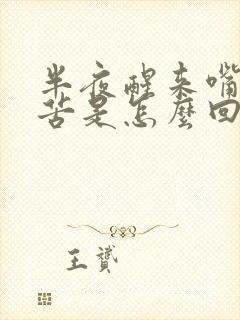 半夜醒来嘴
苦是怎麼回
王贇